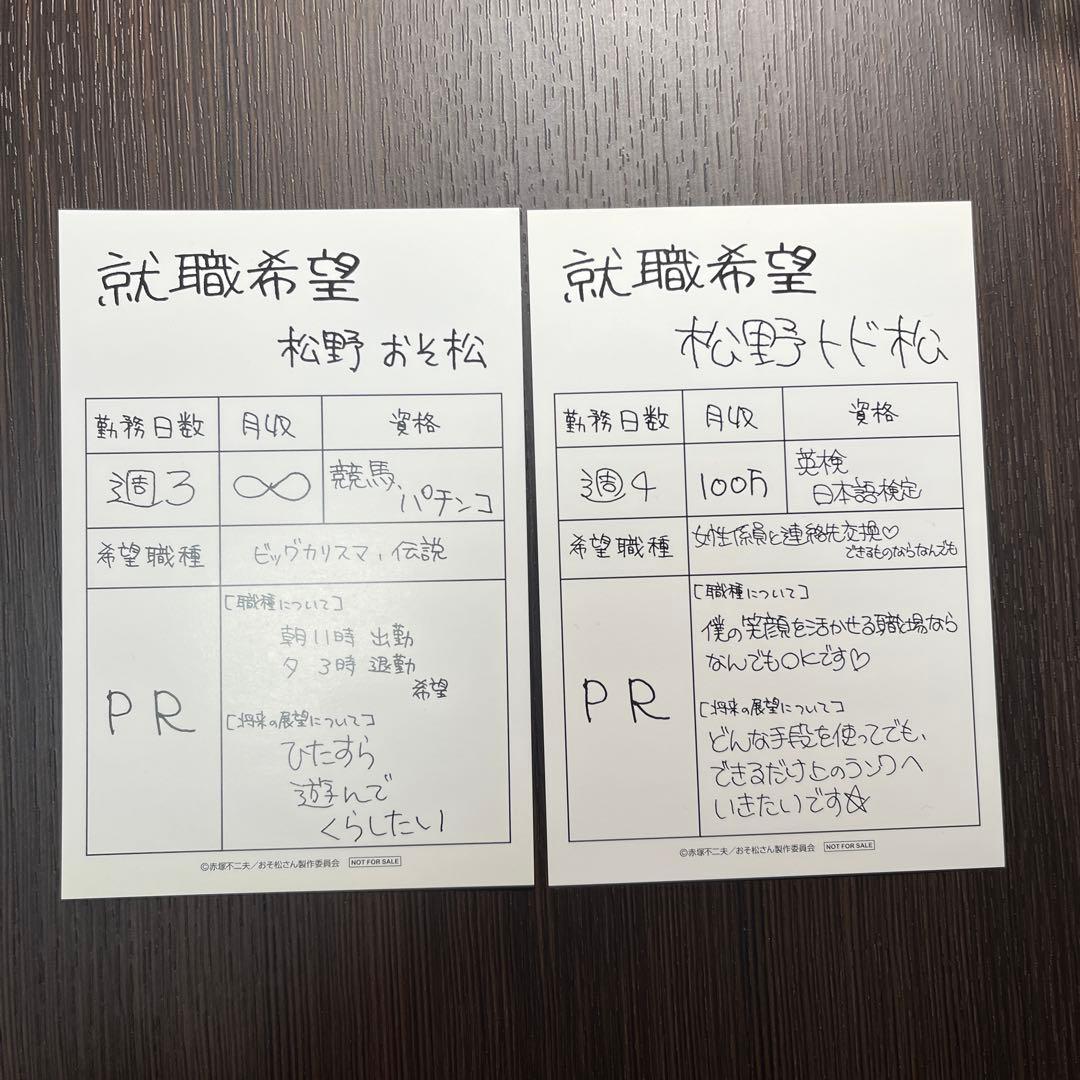 就職希望
松野 おそ松
勤務日数 月収 資格
週3 ∞ 競馬、
パチンコ
希望職種 ビッグカリスマ、伝説
PR
[職種について]
朝11時 出勤
夕 3時 退勤
希望
[将来の展望について]
ひたすら
遊んで
くらしたい
©赤塚不二夫/おそ松さん製作委員会 NOT FOR SALE
就職希望
松野トド松
勤務日数 月収 資格
週4 100万 英検
日本語検定
希望職種 女性係員と連絡先交換♡
できるものならなんでも
PR
[職種について]
僕の笑顔を活かせる職場なら
なんでもOKです♡
[将来の展望について]
どんな手段を使ってでも、
できるだけ上のランクへ
いきたいです☆
©赤塚不二夫/おそ松さん製作委員会 NOT FOR SALE